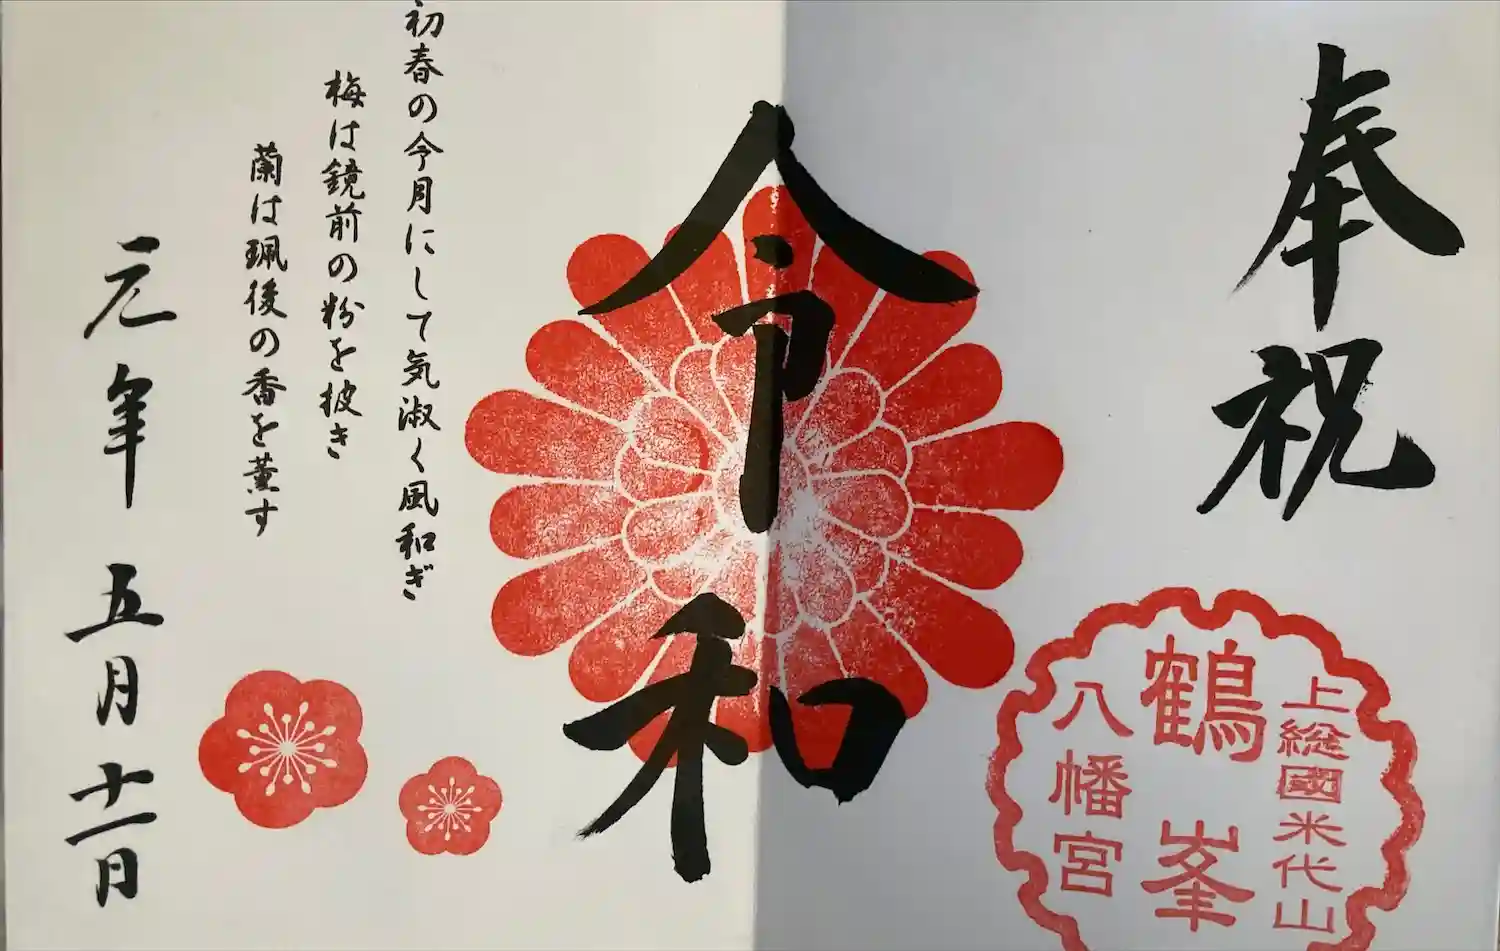 奉祝
上総國米代山
鶴峯
八幡宮
令和
初春の令月にして気淑く風和ぎ
梅は鏡前の粉を披き
蘭は珮後の香を薫す
元年 五月 十一日